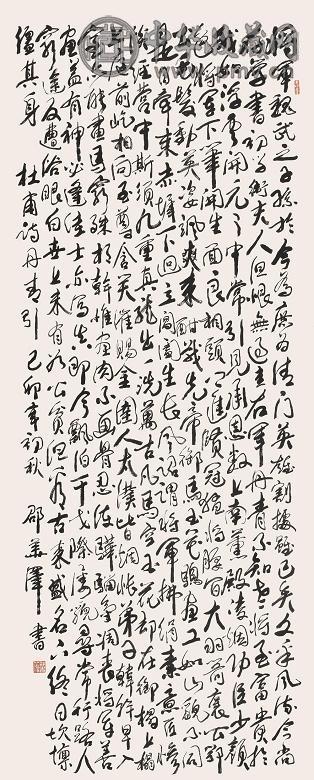 將軍魏武之子孫於今為庶為清門英雄割據雖已矣文采風流今尚
存學書初學衛夫人但恨無過王右軍丹青不知老將至富貴於
我如浮雲開元之中常引見承恩數上南薰殿凌煙功臣少顏
色將軍下筆開生面良相頭上進賢冠猛將腰間大羽箭褒公鄂
公毛髮動英姿颯爽來酣戰先帝御馬玉花驄畫工如山貌不同
是日牽來赤墀下迥立閶闔生長風詔謂將軍拂絹素意匠慘
淡經營中斯須九重真龍出一洗萬古凡馬空玉花却在御榻上榻
上庭前屹相向至尊含笑催賜金圉人太僕皆惆悵弟子韓幹早入
室亦能畫馬窮殊相幹惟畫肉不畫骨忍使驊騮氣凋喪將軍善
畫蓋有神必逢佳士亦寫真即今飄泊干戈際屢貌尋常行路人
窮途反遭俗眼白世上未有如公貧但看古來盛名下終日坎壈
纏其身 杜甫詩丹青引 己卯年初秋 邵華澤書